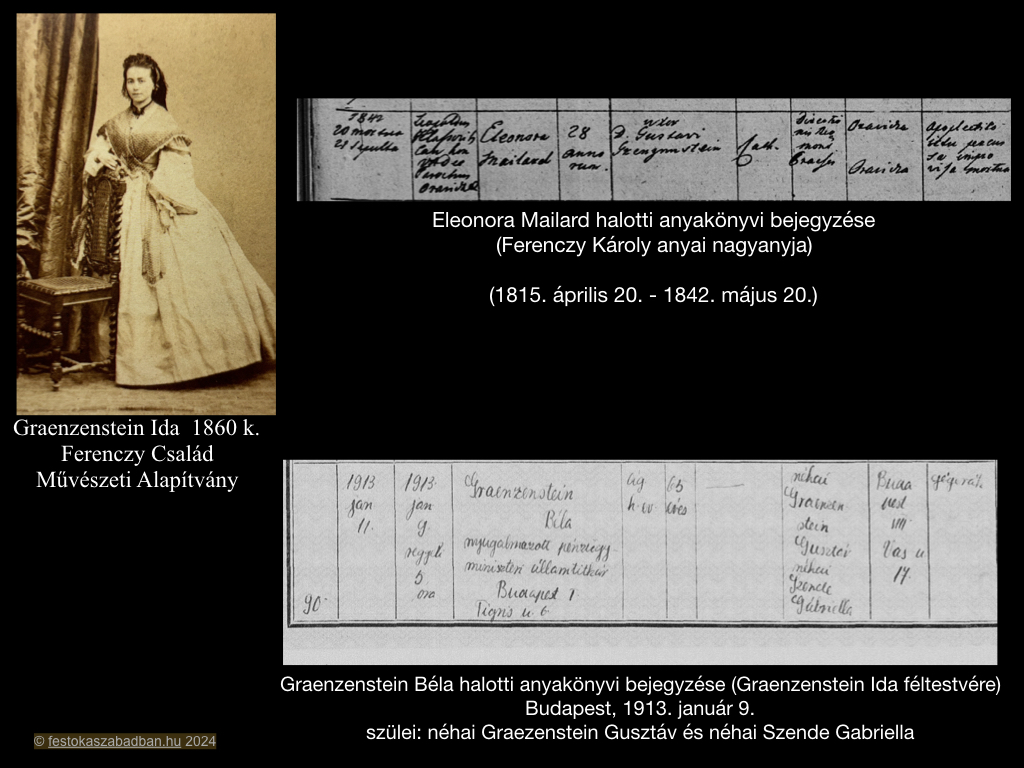 1842
20 mortua
21 Sepulta
Eleonora
Mailard
28
anno
rum.
uxor
D. Gustavi
Cath.
Oravicza
Oravicza
Eleonora Mailard halotti anyakönyvi bejegyzése
(Ferenczy Károly anyai nagyanyja)
(1815. április 20. - 1842. május 20.)
Graenzenstein Ida 1860 k.
Ferenczy Család
Művészeti Alapítvány
90.
1913
jan
11.
1913.
jan
9.
reggeli
5
óra
Graenzenstein
Béla
nyugalmazott pénzügy-
miniszteri államtitkár
Budapest I
Tigris u. 6
ág.
h. ev.
65
éves
néhai
Graenzen
stein
Gusztáv
néhai
Szende
Gabriella
Buda
pest
VIII.
Vas u
17.
Graenzenstein Béla halotti anyakönyvi bejegyzése (Graenzenstein Ida féltestvére)
Budapest, 1913. január 9.
szülei: néhai Graezenstein Gusztáv és néhai Szende Gabriella
© festokaszabadban.hu 2024